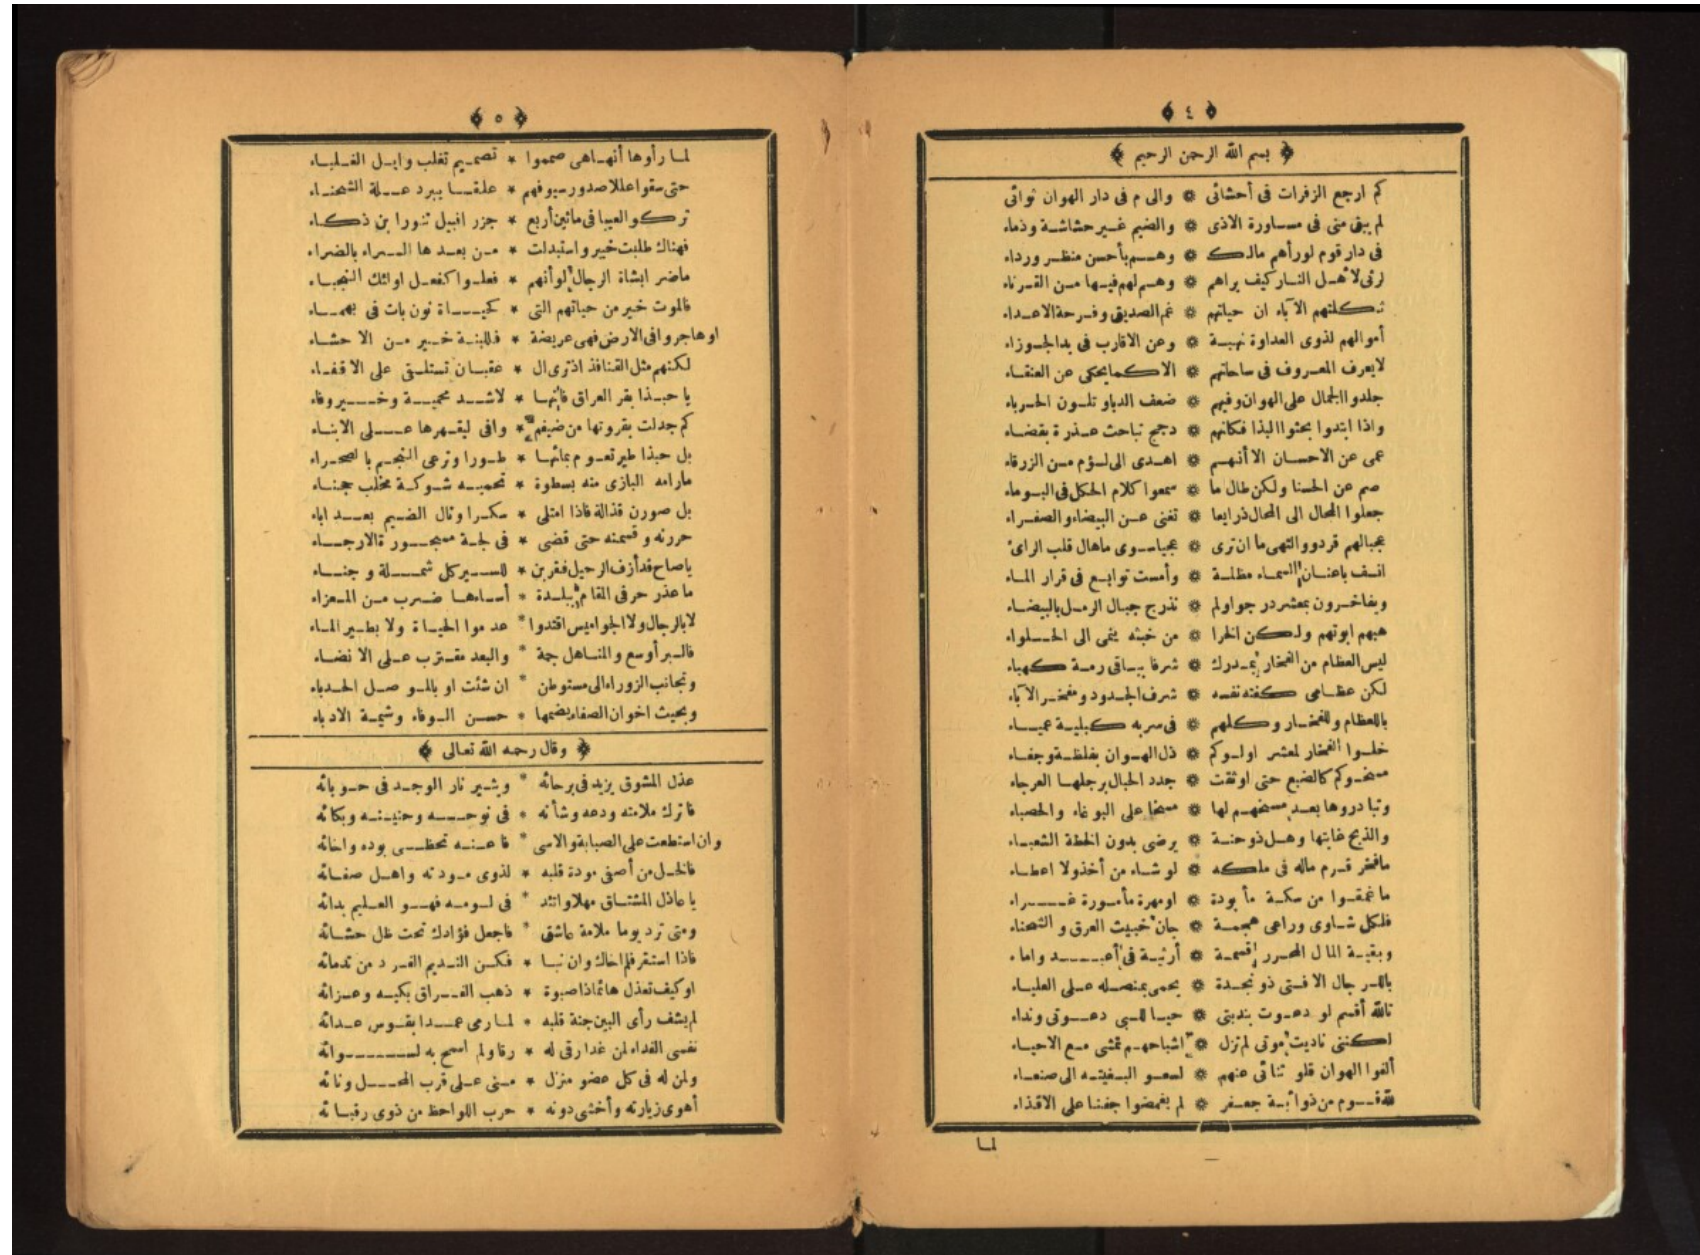 ٤
بسم الله الرحمن الرحيم
كم ارجع الزفرات فى أحشائى * والى م فى دار الهوان ثوائى
لم يبقى منى فى مساورة الاذى * والضيم غير حشاشة وذماء
فى دار قوم لو رأهم مالك * وهم بأحسن منظر ورداء
لرثى لأهل النار كيف يراهم * وهم لهم فيها من القرناء
ثكلتهم الآباء ان حياتهم * غم الصديق وفرحة الاعداء
أموالهم لذوى العداوة نهبة * وعن الاقارب فى يد الجوزاء
لا يعرف المعروف فى ساحاتهم * الا كما يحكى عن العنقاء
جلدوا الجمال على الهوان وفيهم * ضعف الدبا وتلون الحرباء
واذا ابتدوا بحثوا البذا فكانهم * دجج تباحث عذرة بقضاء
عمى عن الاحسان الا أنهم * اهدى الى لؤم من الزرقاء
صم عن الحسنا ولكن طال ما * سمعوا كلام الحكل فى البوماء
جعلوا المحال الى المحال ذرايعا * تغنى عن البيضاء والصفراء
عجبا لهم قردوو التهى ما ان ترى * عجبا سوى ماهال قلب الرائ
انف باعنان السماء مظلة * وأمست توابع فى قرار الماء
ويفاخرون بمعشر درجوا ولم * تدرج جبال الرمل بالبيضاء
هبهم ابوتهم ولكن الخرا * من خبثه ينمى الى الحلواء
ليس العظام من الفخار بمدرك * شرفا بباقى رمة كهباء
لكن عظامى كفته نفسه * شرف الجدود ومفخر الآباء
باللعظام وللفخار وكلهم * فى سربه كبلية عمياء
خلوا الفخار لمعشر اولوكم * ذل الهوان بغلظة وجفاء
مسخوكم كالضبع حتى اوثقت * جدد الحبال برجلها العرجاء
وتبادروها بعد مسخهم لها * مسخا على البوغاء والحصباء
والذبح غايتها وهل ذو حنة * يرضى بدون الخطة الشعباء
مافخر قرم ماله فى ملكه * لو شاء من أخذ ولا اعطاء
ما غمقوا من سكة مأبودة * اومهرة مأمورة غراء
فلكل شاوى وراعى هجمة * جان خبيث العرق والشحناء
وبقية المال المحرر قسمة * أرثية فى أعبد واماء
باللرجال الا فتى ذو نجدة * يحمى بمنصله على العلياء
تالله أقسم لو دعوت بندبتى * حيا للبى دعوتى ونداء
لكننى ناديت موتى لم تزل * اشباحهم تمشى مع الاحياء
ألفوا الهوان فلو تنائى عنهم * لسعو البغيته الى صنعاء
لله قوم من ذوائبة جعفر * لم يغمضوا جفنا على الاقذاء
لما
٥
لما رأوها أنها هى صمموا * تصميم تغلب وايل الغلباء
حتى سقوا عللا صدور سيوفهم * علقا يبرد علة الشحناء
تركوا العبيا فى مائين أربع * جزر افبيل تنورا بن ذكاء
فهناك طلبت خيبر واستبدلت * من بعدها السراء بالضراء
ماضر ابشاة الرجال لو أنهم * فعلوا كفعل اولئك النجباء
فالموت خير من حياتهم التى * كحياة نون بات فى بهماء
او هاجروا فى الارض فهى عريضة * فللبنة خير من الاحشاء
لكنهم مثل القنافذ اذ ترى ال * عقبان تستلقى على الاقفاء
يا حبذا بقر العراق فانها * لاشد محمية وخير وفاء
كم جدلت بقرونها من ضيغم * وافى ليقهرها على الابناء
بل حبذا طير تعوم بمائها * طورا وترعى النجم بالصحراء
مارامه البازى منه بسطوة * تحميه شوكة مخلب حجناء
بل صورن قذالة فاذا امتلى * سكرا ونال الضيم بعد اباء
حررنه وقسمنه حتى قضى * فى لجة مسجورة الارجاء
ياصاح قد أزف الرحيل فقربن * للسير كل شملة وجناء
ماعذر حر فى المقام ببلدة * أسادها ضرب من المعزاء
لا بالرجال ولا الجواميس اقتدوا * عدموا الحياة ولا بطير الماء
فالبر أوسع والمناهل جمة * والبعد مقترب على الانضاء
وتجانب الزوراء الى مستوطن * ان شئت او بالموصل الحدباء
وبحيث اخوان الصفاء يضمها * حسن الوفاء وشيمة الادباء
وقال رحمه الله تعالى
عذل المشوق يزيد فى برحائه * ويشير نار الوجد فى حوبائه
فاترك ملامته ودعه وشأنه * فى نوحه وحنينه وبكائه
وان استطعت على الصبابة والاسى * فاعنه تحظى بوده واخائه
فالخل من أصفى مودة قلبه * لذوى مودته واهل صفائه
يا عاذل المشتاق مهلا واتئد * فى لومه فهو العليم بدائه
ومتى ترد يوما ملامة عاشق * فاجعل فؤادك تحت ظل حشائه
فاذا استقر فلم اخاك وان نبا * فكن النديم الفرد من ندمائه
او كيف تعذل هائما ذا صبوة * ذهب الفراق بكيه وعزائه
لم يشف رأى البين جنة قلبه * لما رمى عمدا بقوس عدائه
نفسى الفداء لمن غدا رقى له * رقا ولم اسمح به لسوائه
ولمن له فى كل عضو منزل * منى على قرب المحل ونائه
أهوى زيارته وأخشى دونه * حرب اللواحظ من ذوى رقبائه